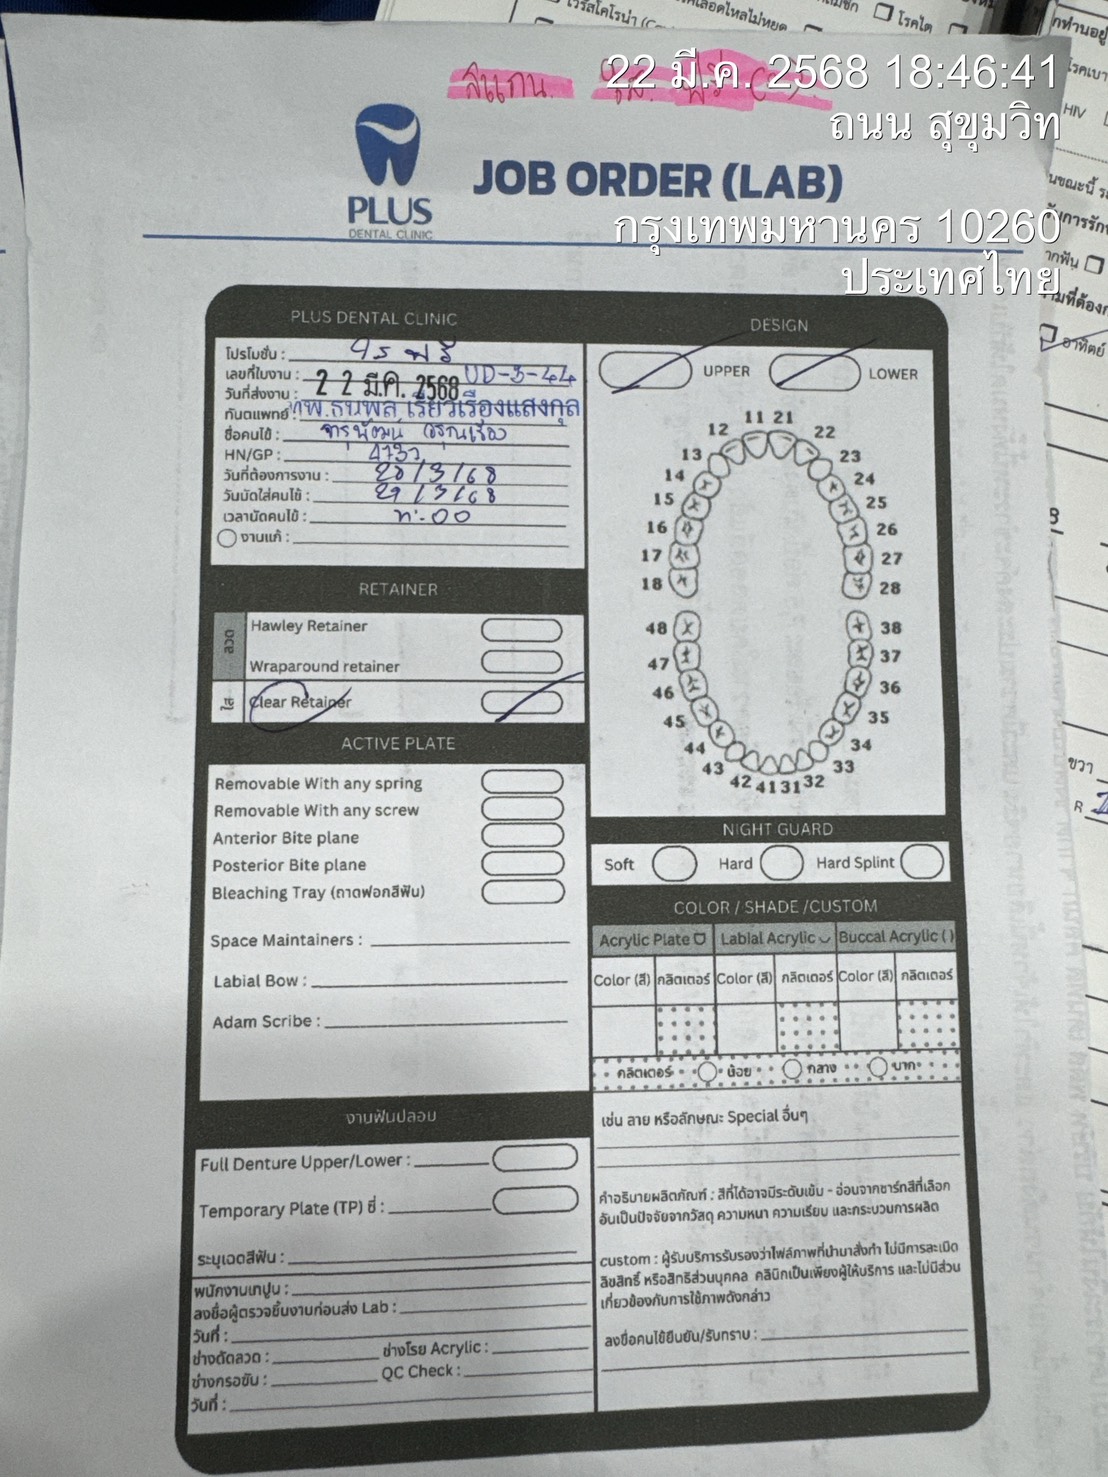 22 มี.ค. 2568 18:46:41
ถนน สุขุมวิท
กรุงเทพมหานคร 10260
ประเทศไทย
โรคไต
HIV
อาทิตย์
ขวา
R
สแกน
PLUS
DENTAL CLINIC
JOB ORDER (LAB)
PLUS DENTAL CLINIC
โปรโมชั่น : รีร ฟรี
เลขที่ใบงาน : UD-3-44
วันที่ส่งงาน : 22 มี.ค. 2568
ทันตแพทย์ : ทพ.ธนพล เรียวเรืองแสงกุล
ชื่อคนไข้ : จารุพัฒน์
HN/GP : 4737
วันที่ต้องการงาน : 28/3/68
วันนัดใส่คนไข้ : 29/3/68
เวลานัดคนไข้ :
งานแก้ :
RETAINER
ลวด
Hawley Retainer
Wraparound retainer
ใส
Clear Retainer
ACTIVE PLATE
Removable With any spring
Removable With any screw
Anterior Bite plane
Posterior Bite plane
Bleaching Tray (ถาดฟอกสีฟัน)
Space Maintainers :
Labial Bow :
Adam Scribe :
งานฟันปลอม
Full Denture Upper/Lower :
Temporary Plate (TP) ซี่ :
ระบุเฉดสีฟัน :
พนักงานเทปูน :
ลงชื่อผู้ตรวจชิ้นงานก่อนส่ง Lab :
วันที่ :
ช่างดัดลวด : ช่างโรย Acrylic :
ช่างกรอขัด : QC Check :
วันที่ :
DESIGN
UPPER LOWER
11 21
12 22
13 23
14 24
15 25
16 26
17 27
18 28
48 38
47 37
46 36
45 35
44 34
43 33
42 41 31 32
NIGHT GUARD
Soft Hard Hard Splint
COLOR / SHADE /CUSTOM
Acrylic Plate Labial Acrylic Buccal Acrylic ( )
Color (สี) กลิตเตอร์ Color (สี) กลิตเตอร์ Color (สี) กลิตเตอร์
กลิตเตอร์ น้อย กลาง มาก
เช่น ลาย หรือลักษณะ Special อื่นๆ
คำอธิบายผลิตภัณฑ์ : สีที่ได้อาจมีระดับเข้ม - อ่อนจากชาร์ทสีที่เลือก
อันเป็นปัจจัยจากวัสดุ ความหนา ความเรียบ และกระบวนการผลิต
custom : ผู้รับบริการรับรองว่าไฟล์ภาพที่นำมาสั่งทำ ไม่มีการละเมิด
ลิขสิทธิ์ หรือสิทธิส่วนบุคคล คลินิกเป็นเพียงผู้ให้บริการ และไม่มีส่วน
เกี่ยวข้องกับการใช้ภาพดังกล่าว
ลงชื่อคนไข้ยืนยัน/รับทราบ :